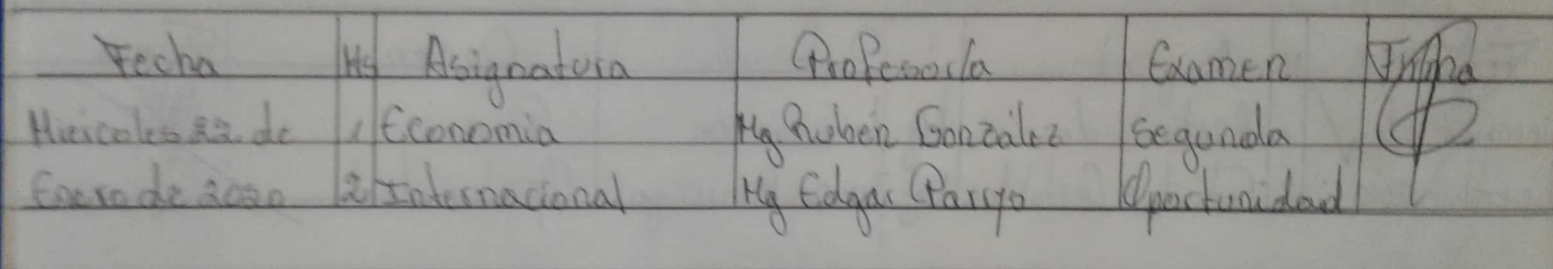 Fecha Hg Asignatura Profesor/a Examen Firma
Miércoles 22 de 1 Economia Mg Ruben González Segunda
Enero de 2020 2 Internacional Mg Edgar Oportunidad